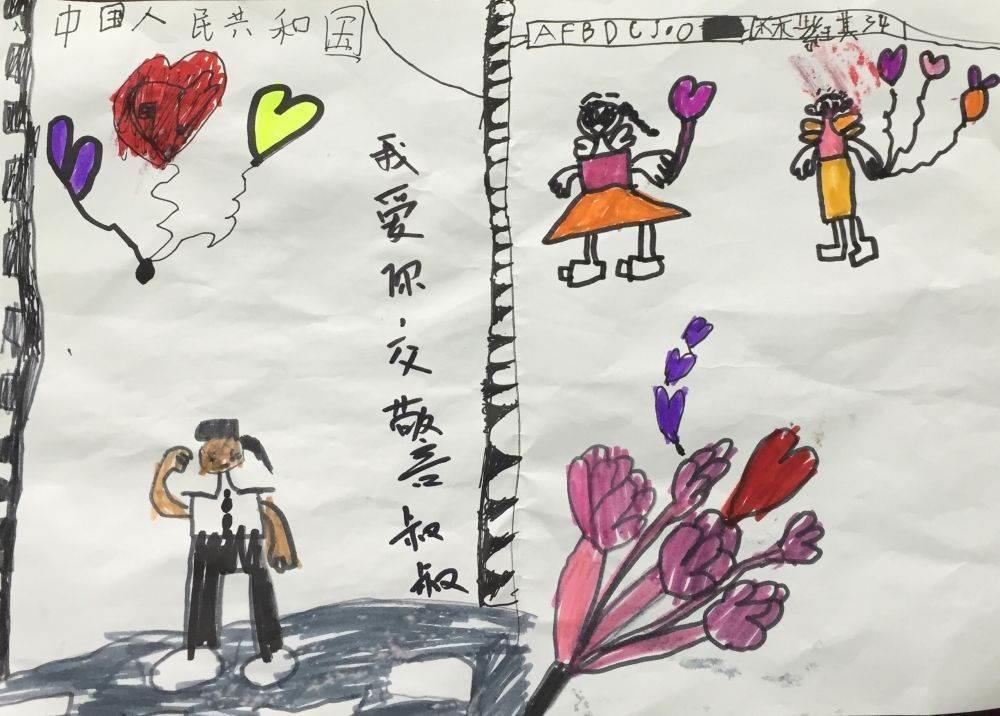 中国人民共和国
AFBDCJOO
我爱你，交警叔叔